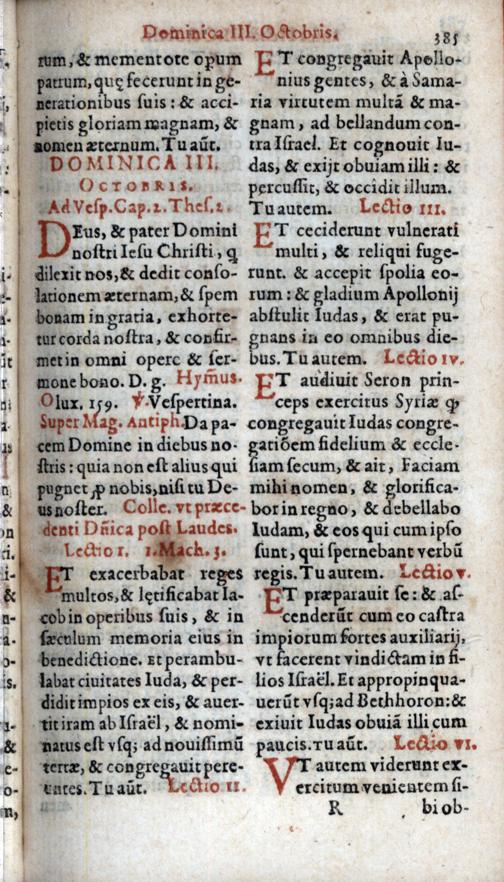 Dominica III. Octobris. 385
rum, & mementote opum
patrum, quę fecerunt in ge-
nerationibus suis: & acci-
pietis gloriam magnam, &
nomen æternum. Tu aūt.
DOMINICA III.
OCTOBRIS.
Ad Vesp. Cap. 2. Thes. 2.
DEus, & pater Domini
nostri Iesu Christi, q
dilexit nos, & dedit conso-
lationem æternam, & spem
bonam in gratia, exhorte-
tur corda nostra, & confir-
met in omni opere & ser-
mone bono. D. g. Hym̄us.
O lux. 159. ℣. Vespertina.
Super Mag. Antiph. Da pa-
cem Domine in diebus no-
stris: quia non est alius qui
pugnet ꝓ nobis, nisi tu De-
us noster. Colle. vt præce-
denti Dñica post Laudes.
Lectio I. 1. Mach. 3.
ET exacerbabat reges
multos, & lętificabat Ia-
cob in operibus suis, & in
sæculum memoria eius in
benedictione. Et perambu-
labat ciuitates Iuda, & per-
didit impios ex eis, & auer-
tit iram ab Israël, & nomi-
natus est vsq; ad nouissimū
terræ, & congregauit pere-
untes. Tu aūt. Lectio II.
ET congregauit Apollo-
nius gentes, & à Sama-
ria virtutem multā & ma-
gnam, ad bellandum con-
tra Israel. Et cognouit Iu-
das, & exijt obuiam illi: &
percussit, & occidit illum.
Tu autem. Lectio III.
ET ceciderunt vulnerati
multi, & reliqui fuge-
runt. & accepit spolia eo-
rum: & gladium Apollonij
abstulit Iudas, & erat pu-
gnans in eo omnibus die-
bus. Tu autem. Lectio IV.
ET audiuit Seron prin-
ceps exercitus Syriæ ꝙ
congregauit Iudas congre-
gatiōem fidelium & eccle-
siam secum, & ait, Faciam
mihi nomen, & glorifica-
bor in regno, & debellabo
Iudam, & eos qui cum ipso
sunt, qui spernebant verbū
regis. Tu autem. Lectio V.
ET præparauit se: & as-
cenderūt cum eo castra
impiorum fortes auxiliarij,
vt facerent vindictam in fi-
lios Israël. Et appropinqua-
uerūt vsq; ad Bethhoron: &
exiuit Iudas obuiā illi cum
paucis. Tu aūt. Lectio VI.
VT autem viderunt ex-
ercitum venientem si-
R bi ob-